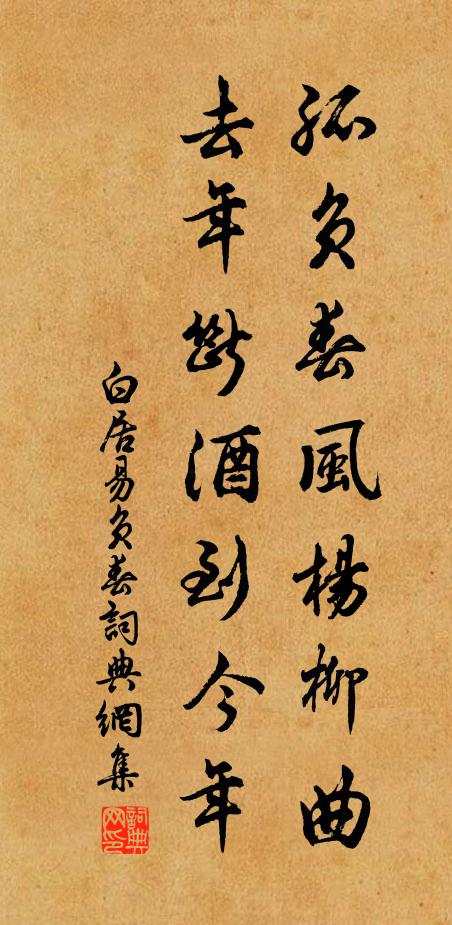 孤負春風楊柳曲
去年斷酒到今年
白居易負春詞典網集
詞典网印